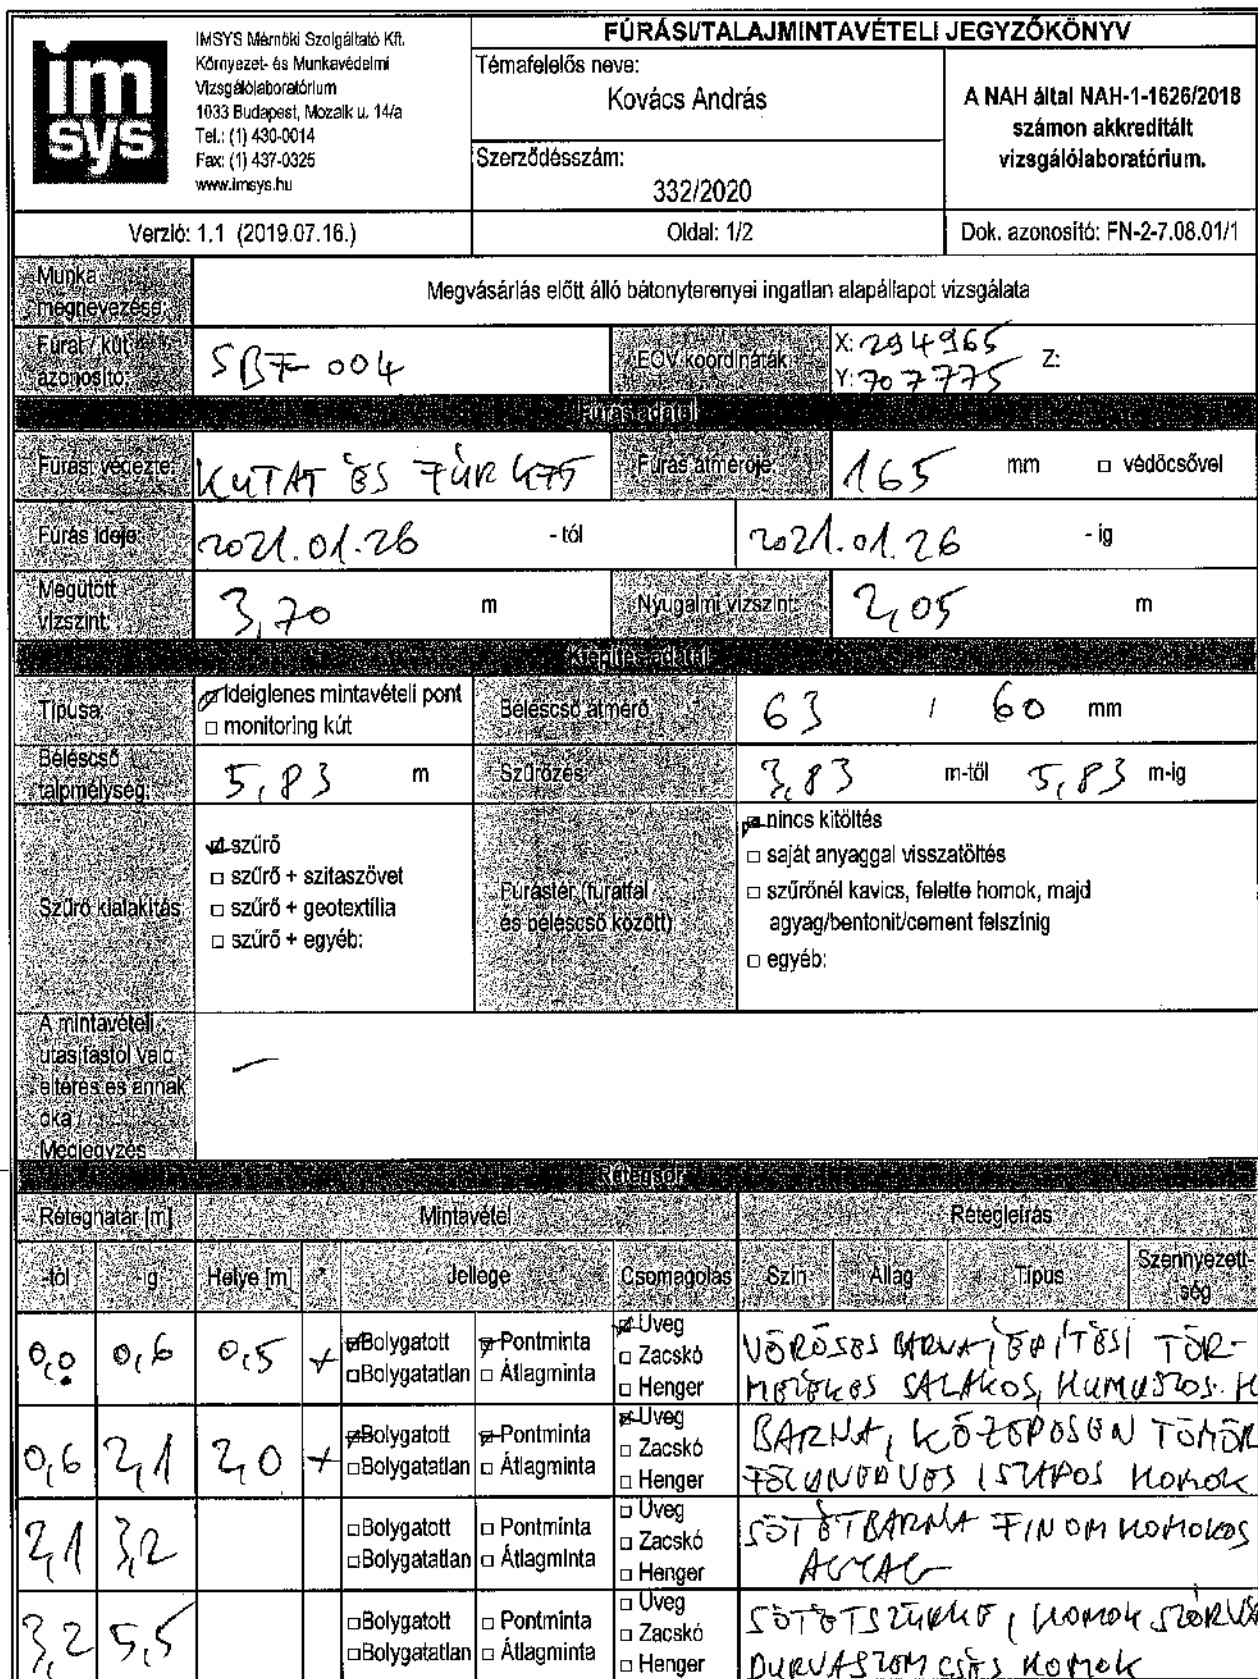 im
sys
IMSYS Mérnöki Szolgáltató Kft.
Környezet- és Munkavédelmi
Vizsgálólaboratórium
1033 Budapest, Mozaik u. 14/a
Tel.: (1) 430-0014
Fax: (1) 437-0325
www.imsys.hu
FÚRÁSI/TALAJMINTAVÉTELI JEGYZŐKÖNYV
Témafelelős neve:
Kovács András
Szerződésszám:
332/2020
A NAH által NAH-1-1626/2018
számon akkreditált
vizsgálólaboratórium.
Verzió: 1.1 (2019.07.16.) Oldal: 1/2 Dok. azonosító: FN-2-7.08.01/1
Munka
megnevezése:
Megvásárlás előtt álló bátonyterenyei ingatlan alapállapot vizsgálata
Fúrat / kút
azonosító:
SBF-004
EOV koordináták
X: 294965
Y: 707775
Z:
Fúrás adatai
Fúrást végezte: KUTAT ÉS FÚR KFT
Fúrás átmérője: 165 mm □ védőcsővel
Fúrás ideje: 2021.01.26 - tól 2021.01.26 - ig
Megütött
vízszint:
3,70 m
Nyugalmi vízszint: 2,05 m
Kiépítés adatai
Típusa:
Ideiglenes mintavételi pont
□ monitoring kút
Béléscső átmérő 63 / 60 mm
Béléscső
talpmélység:
5,83 m
Szűrőzés: 3,83 m-től 5,83 m-ig
Szűrő kialakítás
szűrő
□ szűrő + szitaszövet
□ szűrő + geotextília
□ szűrő + egyéb:
Fúrástér (fúratfal
és béléscső között)
nincs kitöltés
□ saját anyaggal visszatöltés
□ szűrőnél kavics, felette homok, majd
agyag/bentonit/cement felszínig
□ egyéb:
A mintavételi
utasítástól való
eltérés és annak
oka /
Megjegyzés
—
Rétegsor
Réteghatár [m] Mintavétel Rétegleírás
-tól -ig Helye [m] * Jellege Csomagolás Szín Állag Típus Szennyezett-
ség
0,0 0,6 0,5 +
Bolygatott Pontminta Üveg
□Bolygatatlan □ Átlagminta □ Zacskó
□ Henger
VÖRÖSES BARNA, ÉPÍTÉSI TÖR-
MELÉKES SALAKOS, HUMUSZOS. H
0,6 2,1 2,0 +
Bolygatott Pontminta Üveg
□Bolygatatlan □ Átlagminta □ Zacskó
□ Henger
BARNA, KÖZEPESEN TÖMÖR
FÖLDNEDVES ISZAPOS HOMOK
2,1 3,2
□Bolygatott □ Pontminta □ Üveg
□Bolygatatlan □ Átlagminta □ Zacskó
□ Henger
SÖTÉTBARNA FINOM HOMOKOS
AGYAG
3,2 5,5
□Bolygatott □ Pontminta □ Üveg
□Bolygatatlan □ Átlagminta □ Zacskó
□ Henger
SÖTÉTSZÜRKE, HOMOK
DURVASZEMCSÉS HOMOK